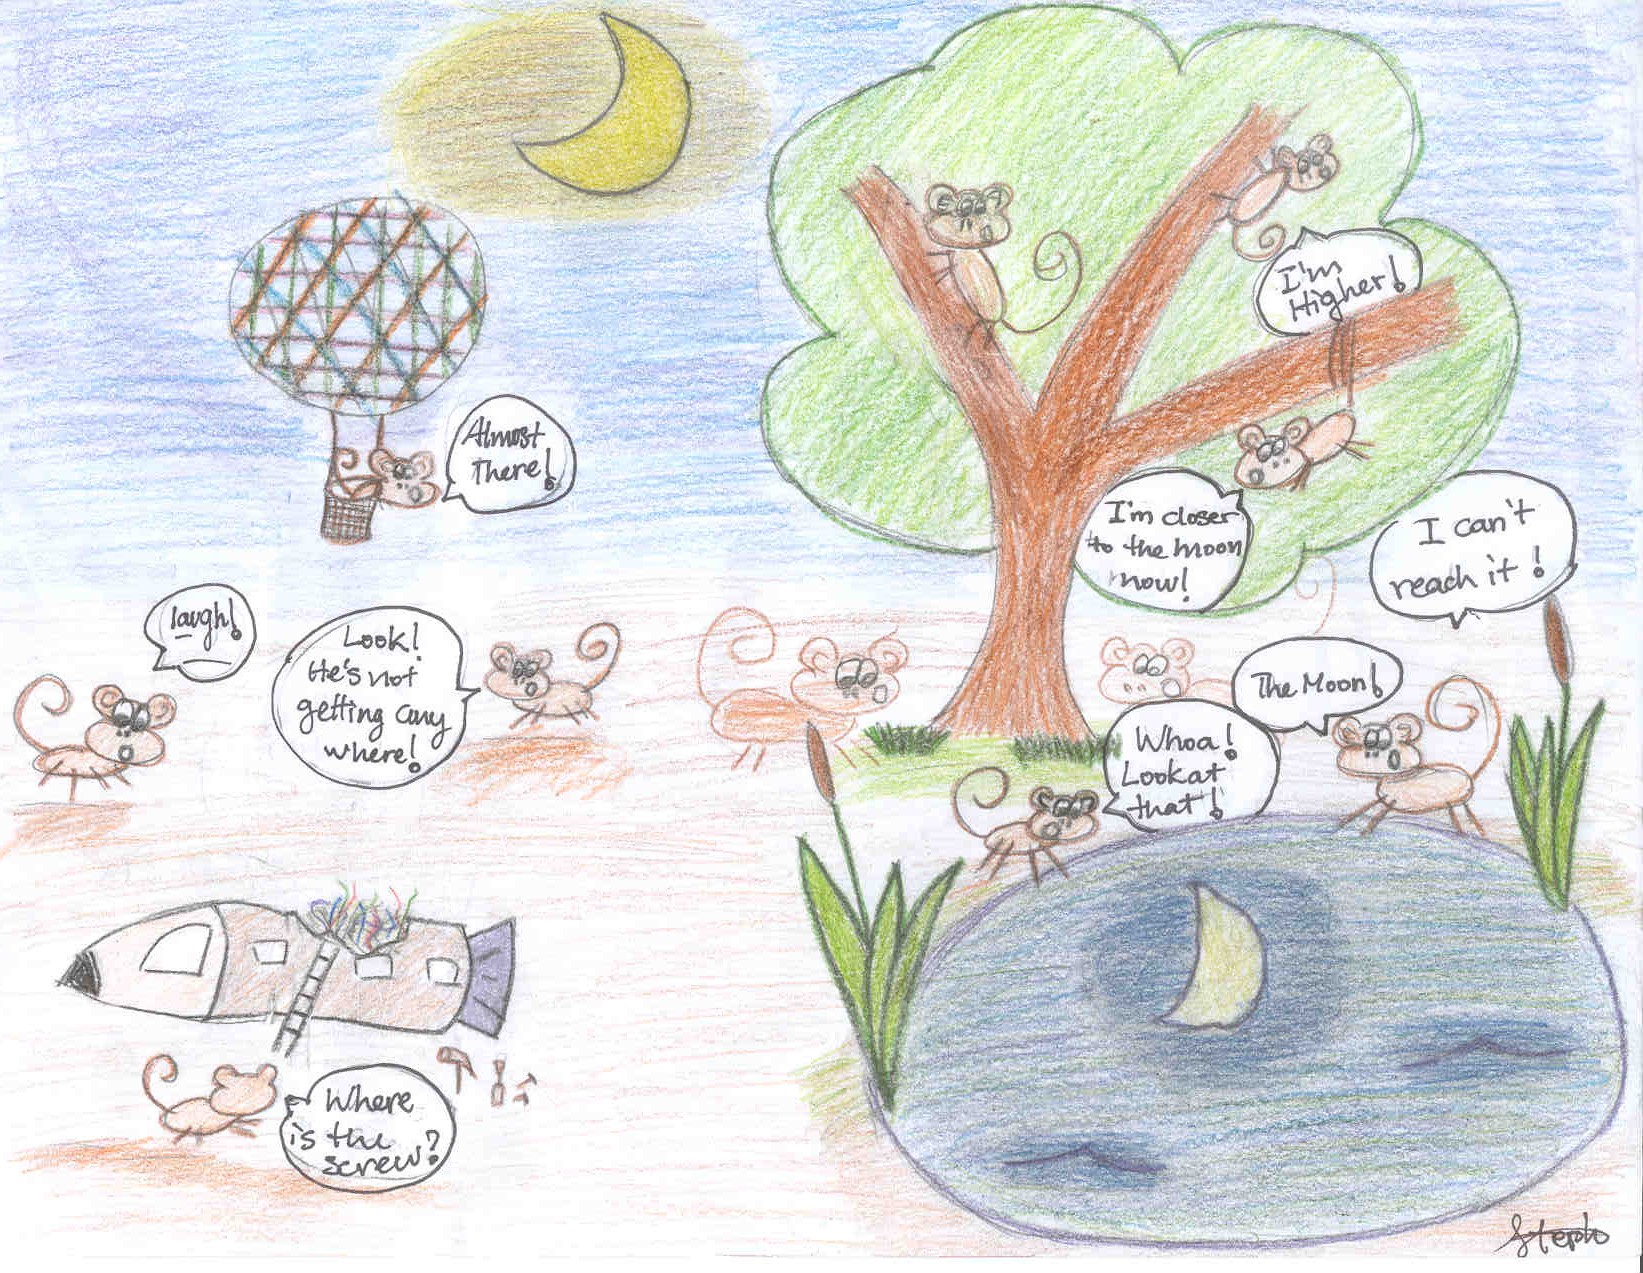 Almost
There!
I'm
Higher!
I'm closer
to the moon
now!
I can't
reach it!
laugh!
Look!
He's not
getting any
where!
The Moon!
Whoa!
Look at
that!
Where
is the
screw?
Steph